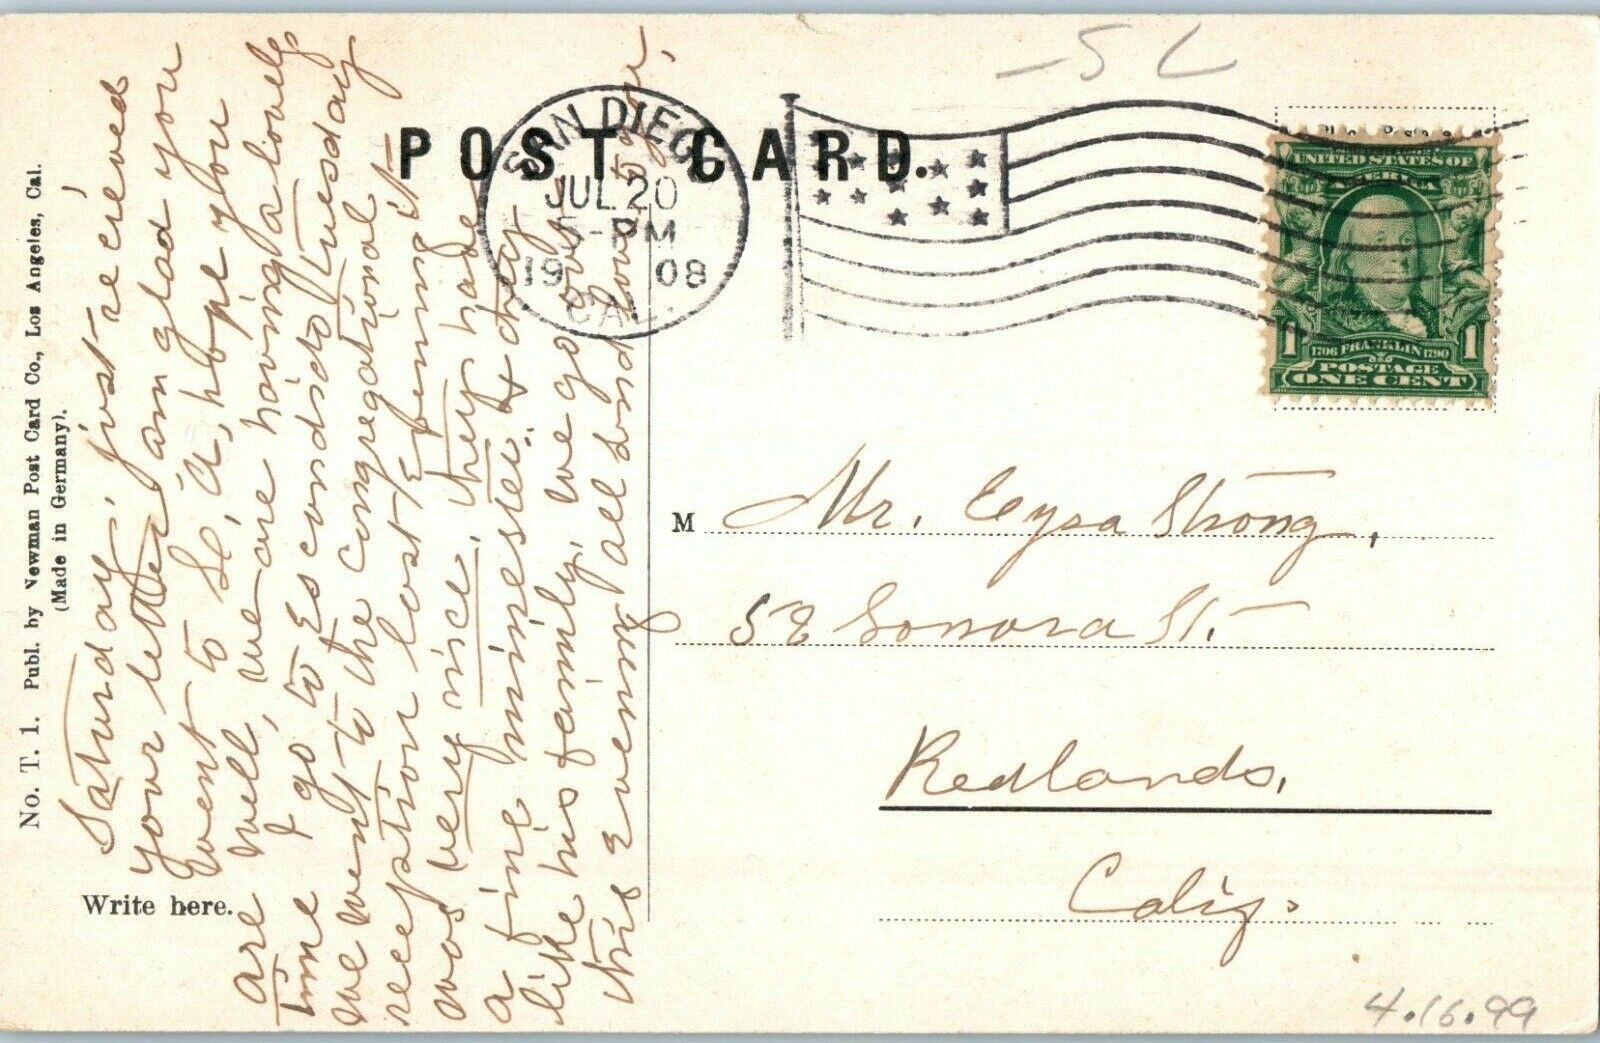 No. T. 1. Publ. by Newman Post Card Co., Los Angeles, Cal.
(Made in Germany).
POST CARD.
SAN DIEGO
JUL 20
5-PM
1908
CAL.
UNITED STATES OF
AMERICA
1 1
1706 FRANKLIN 1790
POSTAGE
ONE CENT
Write here.
Saturday, just recieved
your letter, am glad you
went to L. A., hope you
are well, we are having a lovely
time I go to Escondido Tuesday
we went to the Congregational
reception last Evening it
was very nice. they have
a fine minister & they
like his family, we go over
this evening all send love to you,
M Mr. Eysa Strong,
52 Sonora St.
Redlands,
Calif.
4.16.99